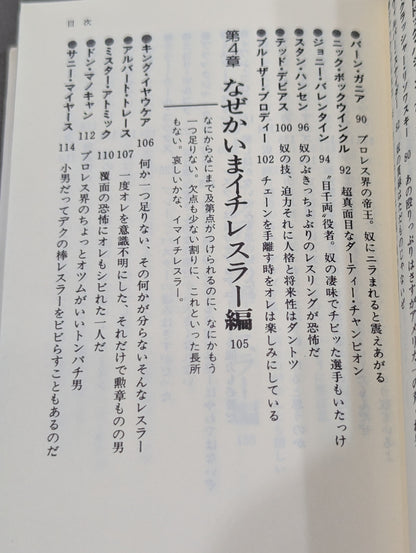 目次
●バーン・ガニア 90 プロレス界の帝王。奴にニラまれると震えあがる
●ニック・ボックウインクル 92 超真面目なダーティーチャンピオン
●ジョニー・バレンタイン 94 〝目千両〟役者。奴の凄味でチビッた選手もいたっけ
●スタン・ハンセン 96 奴のぶきっちょぶりのレスリングが恐怖だ
●テッド・デビアス 100 奴の技、迫力それに人格と将来性はダントツ
●ブルーザー・ブロディー 102 チェーンを手離す時をオレは楽しみにしている
第4章 なぜかいまイチレスラー編 105
なにからなにまで及第点がつけられるのに、なにかもう
一つ足りない。欠点も少ない割りに、これといった長所
もない。哀しいかな、イマイチレスラー。
●キング・イヤウケア 106 何か一つ足りない、その何かが分らないそんなレスラー
●アルバート・トレース 107 一度オレを意識不明にした、それだけで勲章ものの男
●ミスター・アトミック 110 覆面の恐怖にオレもシビれた一人だ
●ドン・マノキャン 112 プロレス界のちょっとオツムがいいトンパチ男
●サニー・マイヤース 114 小男だってデクの棒レスラーをビビらすこともあるのだ